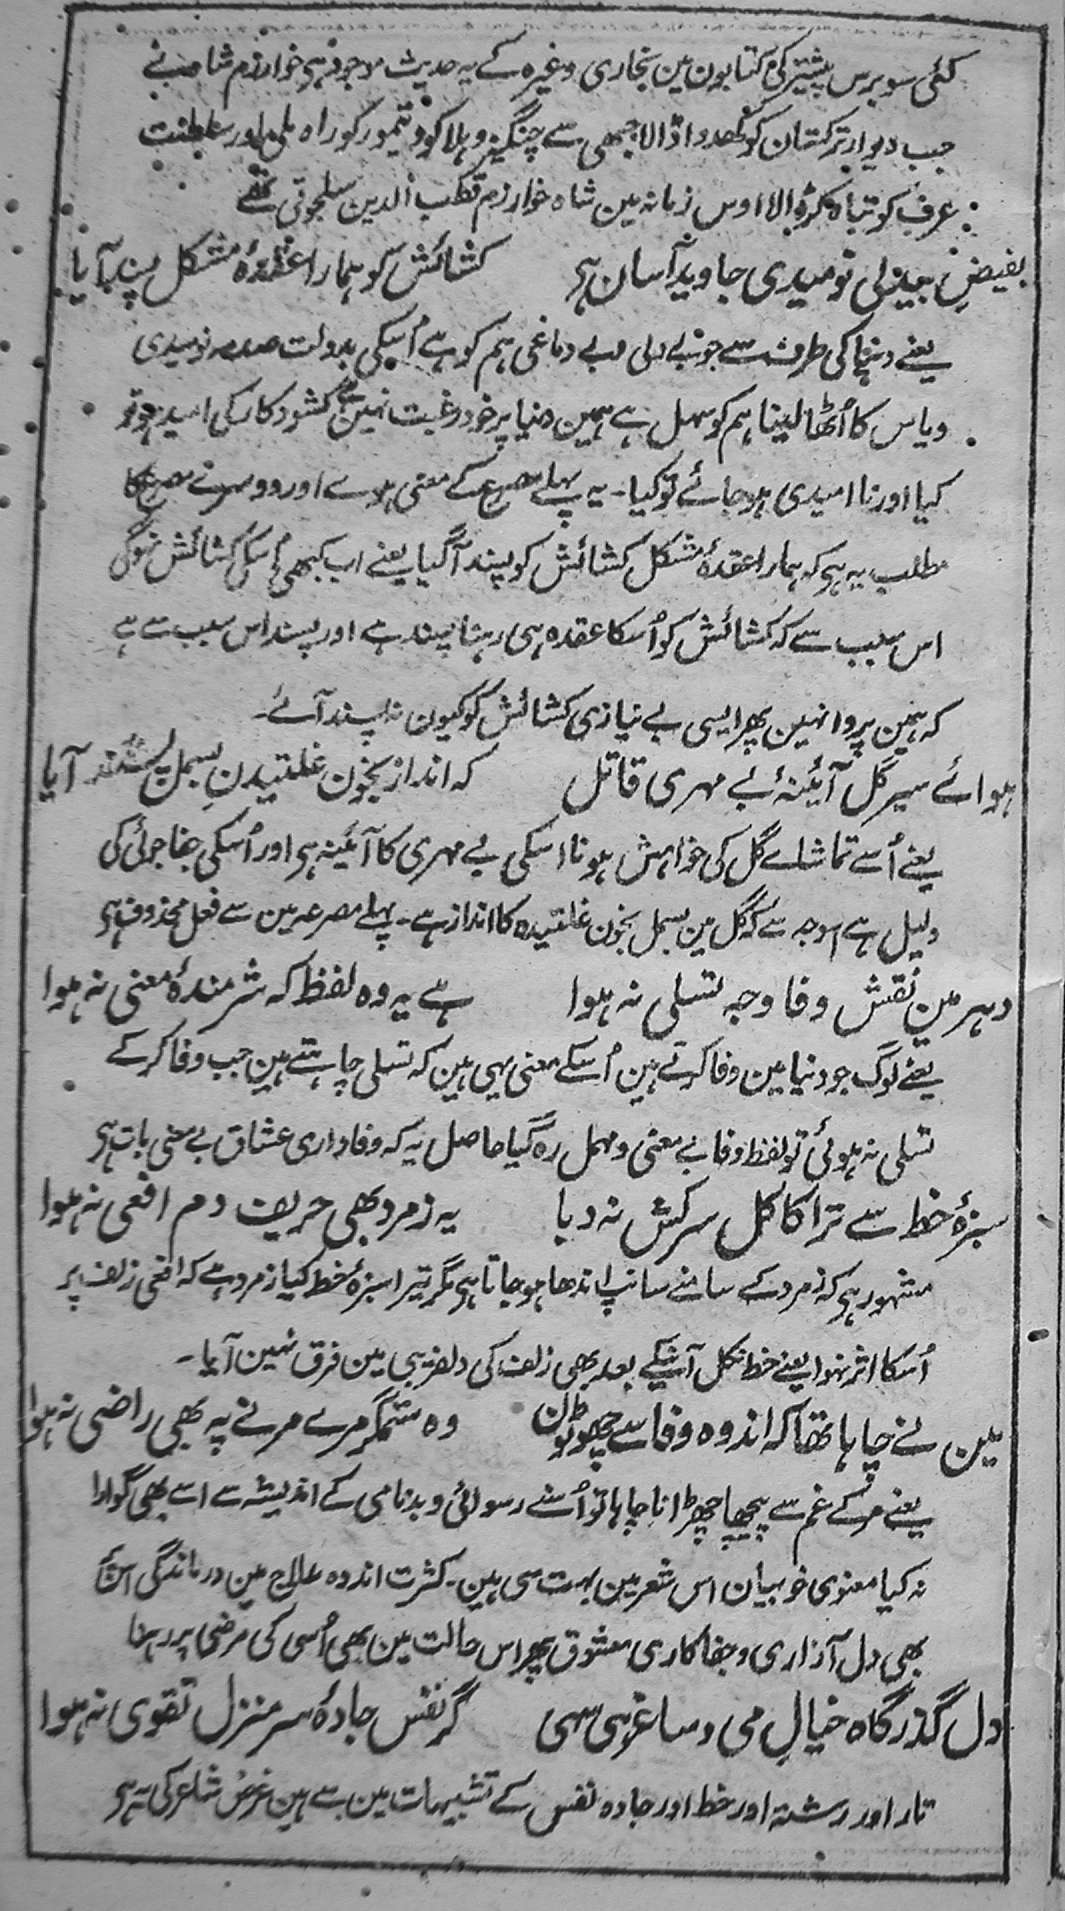 کئی سو برس پیشتر کی کتابون مین بخاری وغیرہ کے یہ حدیث موجود ہی خوارزم شاہ نے
جب دیوار ترکستان کو کھدوا ڈالا جبھی سے چنگیز و ہلاکو و تیمور کو راہ ملی اور سلطنت
عرب کو تباہ کر ڈالا اوس زمانہ مین شاہ خوارزم قطب الدین سلجوقی تھے
بفیضِ بیدلی نومیدی جاوید آسان ہی کشائش کو ہمارا عقدۂ مشکل پسند آیا
یعنے دنیا کی طرف سے جو بے دلی و بے دماغی ہم کو ہے اُسکی بدولت صدمہ نومیدی
و یاس کا اُٹھا لینا ہم کو سہل ہے ہمین دنیا پر خود رغبت نہین ہے کشود کار کی امید ہو تو
کیا اور نا امیدی ہو جائے تو کیا ۔ یہ پہلے مصرع کے معنی ہوے اور دوسرے مصرع کا
مطلب یہ ہی کہ ہمارا عقدۂ مشکل کشائش کو پسند آگیا یعنے اب کبھی اُسکی کشائش نہوگی
اس سبب سے کہ کشائش کو اُسکا عقدہ ہی رہنا پسند ہے اور پسند اس سبب سے ہے
کہ ہمین پروا نہین پھر ایسی بے نیازی کشائش کو کیون نہ پسند آئے ۔
ہوائے سیر گل آئینۂ بے مہری قاتل کہ انداز بخون غلتیدنِ بسمل پسند آیا
یعنے اُسے تماشاے گل کی خواہش ہونا اسکی بے مہری کا آئینہ ہی اور اُسکی جفا جوئی کی
دلیل ہے اسوجہ سے کہ گل مین بسمل بخون غلتیدہ کا انداز ہے ۔ پہلے مصرعہ مین سے فعل محذوف ہی
دہر مین نقش وفا وجہ تسلی نہ ہوا ہے یہ وہ لفظ کہ شرمندۂ معنی نہ ہوا
یعنے لوگ جو دنیا مین وفا کرتے ہین اُسکے معنی یہی ہین کہ تسلی چاہتے ہین جب وفا کرکے
تسلی نہ ہوئی تو لفظ وفا بے معنی و مہمل رہ گیا حاصل یہ کہ وفاداری عشاق بے معنی بات ہی
سبزۂ خط سے ترا کاکل سرکش نہ دبا یہ زمرد بھی حریف دم افعی نہ ہوا
مشہور ہی کہ زمرد کے سامنے سانپ اندھا ہو جاتا ہی مگر تیرا سبزۂ خط کیا زمرد ہے کہ افعی زلف پر
اُسکا اثر نہوا یعنے خط نکل آنیکے بعد بھی زلف کی دلفریبی مین فرق نہین آیا ۔
مین نے چاہا تھا کہ اندوہ وفا سے چھوٹون وہ ستمگر مرے مرنے پہ بھی راضی نہ ہوا
یعنے مر کے غم سے پیچھا چھڑانا چاہا تو اُسنے رسوائی و بدنامی کے اندیشہ سے اسے بھی گوارا
نہ کیا معنوی خوبیان اس شعر مین بہت سی ہین ۔ کثرت اندوہ علاج مین درماندگی اسپر
بھی دل آزاری و جفا کاری معشوق پھر اس حالت مین بھی اُسی کی مرضی پر رہنا
دل گذرگاہ خیالِ می و ساغر ہی سہی گر نفس جادۂ سر منزل تقوی نہ ہوا
تار اور رشتہ اور خط اور جادہ نفس کے تشبیہات مین سے ہین غرض شاعر کی یہ ہی